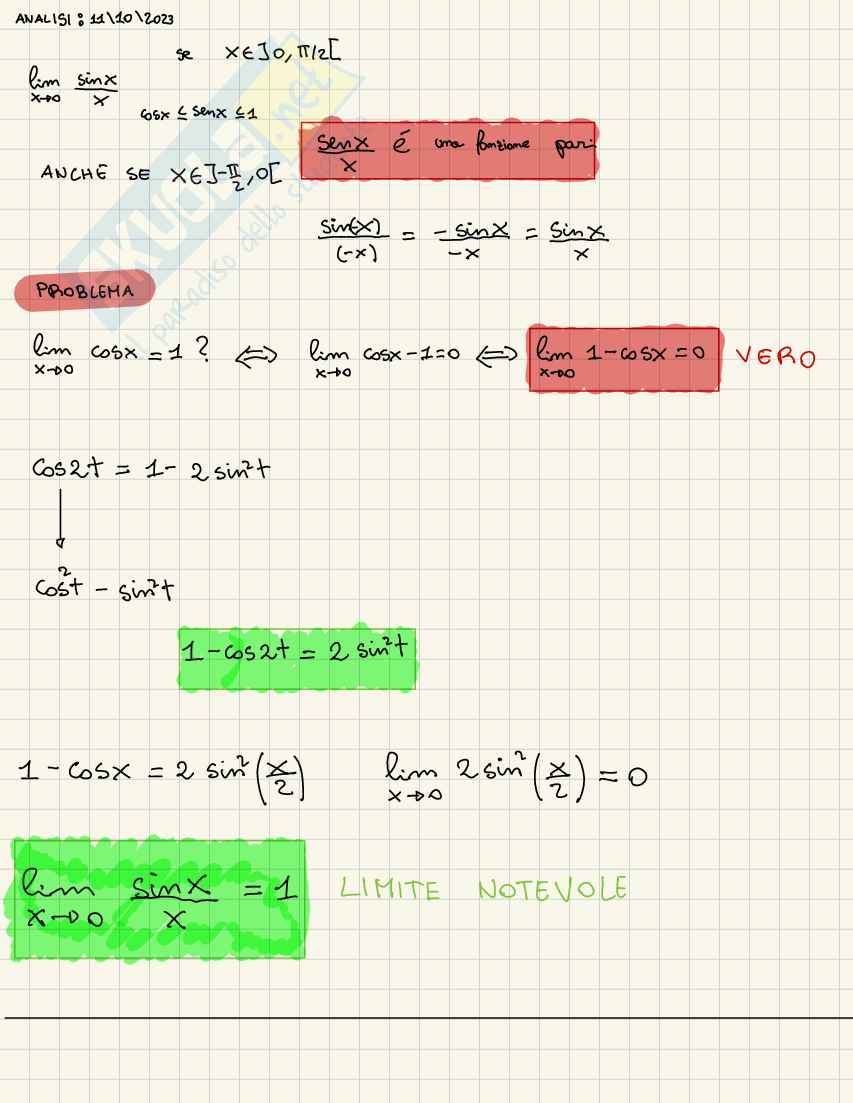 ANALISI: 11\10\2023
se x∈]0,π/2[
lim x→0 sinx/x
cosx ≤ senx ≤ 1
senx/x é una funzione pari
ANCHE SE x∈]-π/2,0[
sin(-x)/(-x) = -sinx/-x = sinx/x
PROBLEMA
lim x→0 cosx = 1 ? ⟺ lim x→0 cosx-1=0 ⟺ lim x→0 1-cosx=0 VERO
cos2t = 1- 2sin²t
↓
cos²t - sin²t
1-cos2t = 2 sin²t
1-cosx = 2 sin²(x/2) lim x→0 2sin²(x/2) = 0
lim x→0 sinx/x = 1 LIMITE NOTEVOLE
SKUOLA.net
il paradiso dello studente